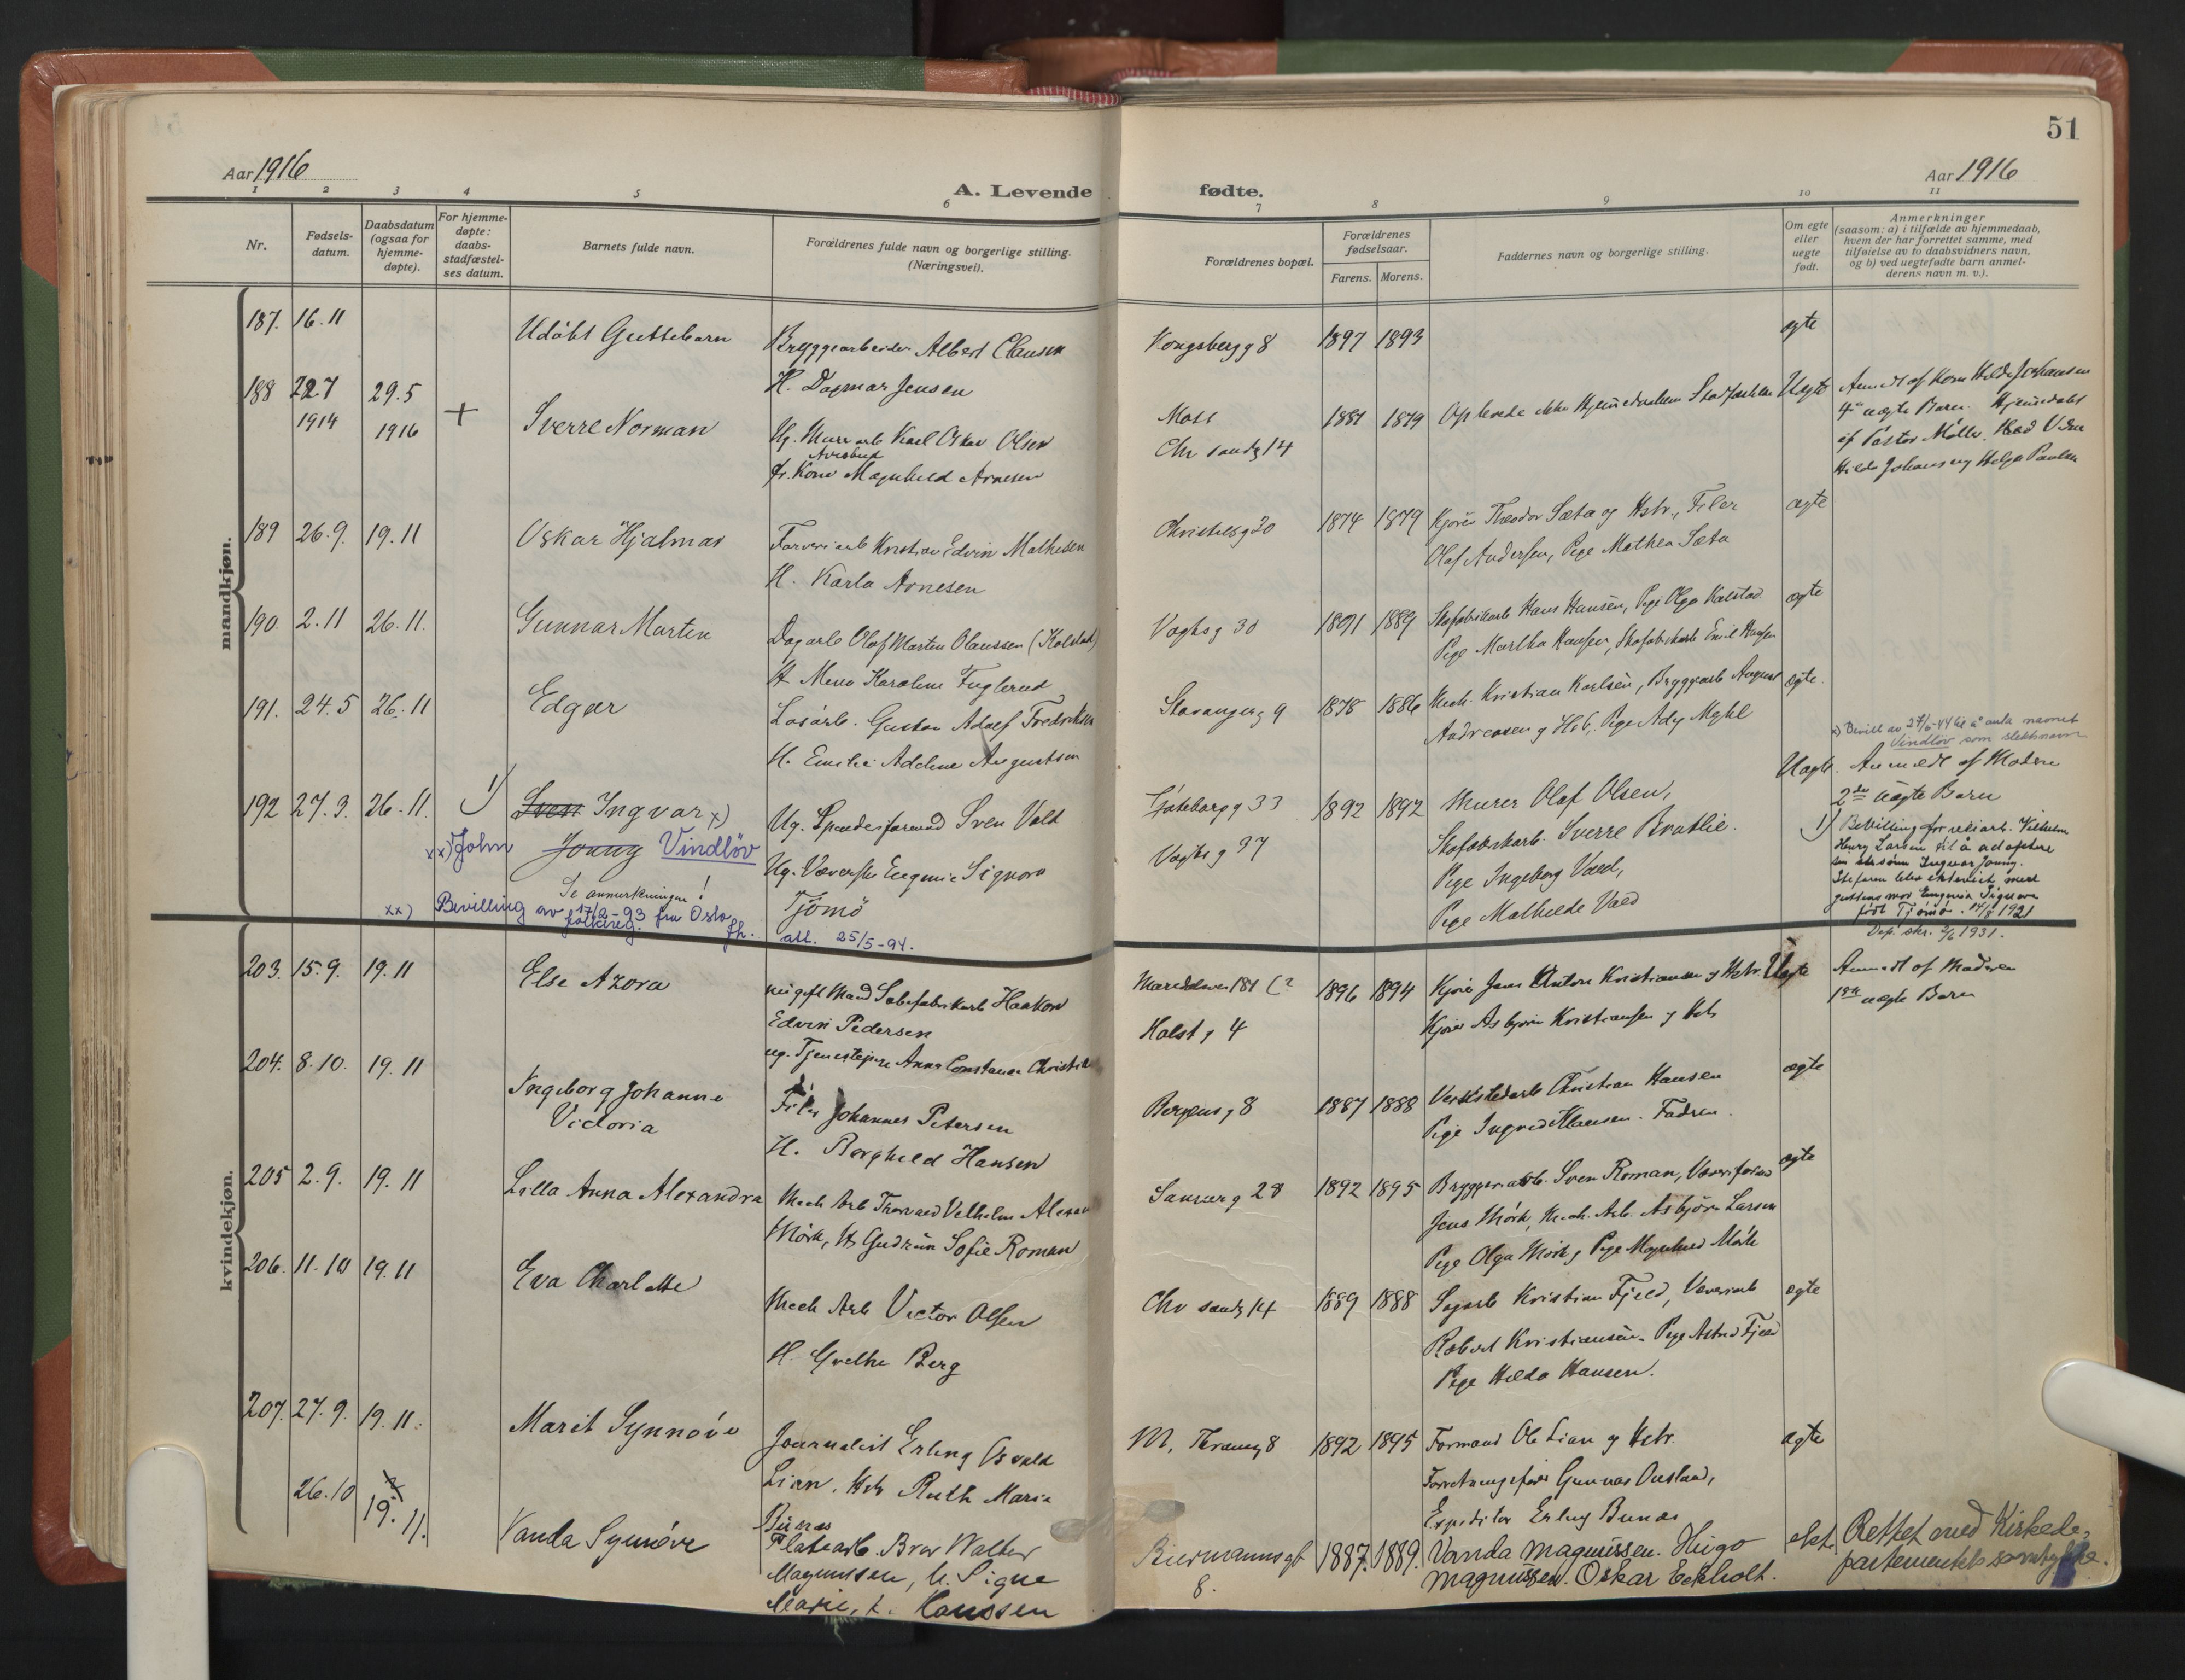 51
Aar 1916
A. Levende fødte.
Aar 1916
1 2 3 4 5 6 7 8 9 10 11
Nr.
Fødsels-
datum.
Daabsdatum
(ogsaa for
hjemme-
døpte).
For hjemme-
døpte:
daabs-
stadfæstel-
ses datum.
Barnets fulde navn.
Forældrenes fulde navn og borgerlige stilling.
(Næringsvei).
Forældrenes bopæl.
Forældrenes
fødselsaar.
Farens. Morens.
Faddernes navn og borgerlige stilling.
Om egte
eller
uegte
født.
Anmerkninger
(saasom: a) i tilfælde av hjemmedaab,
hvem der har forrettet samme, med
tilføielse av to daabsvidners navn,
og b) ved uegtefødte barn anmel-
derens navn m. v.).
mandkjøn.
187. 16.11
Udöbt Guttebarn
Bryggearbeider Albert Clausen
H. Dagmar Jensen
Kongsbergg 8
1897 1893
egte
188 22.7 29.5
1914 1916
+
Sverre Norman
Ug. Murarb Karl Oskar Olsen
fr. Kone Magnhild Arnesen
Moss
Chr sandg 14
1881 1879
Oplevde ikke Hjemmedaabens Stadfæstelse
Uegte
Anmeldt af Kone Hilda Johansen
4de uegte Barn. Hjemmedöbt
af Pastor Möller. Ved Vidne
Hilda Johansen og Helga Paulsen
189 26.9. 19.11
Oskar Hjalmar
Farveriarb Kristian Edvin Mathisen
H. Karla Arnesen
Christiesg 30
1874 1879
Kjörer Theodor Sæta og Hstr., Filer
Olaf Andersen, Pige Mathea Sæta
ægte
190. 2.11 26.11.
Gunnar Martin
Dagarb Olaf Martin Olaussen (Kolstad)
H Mena Karoline Fuglerud
Vogtsg 30
1891 1889
Skofabrikarb Hans Hansen, Pige Olga Kolstad
Pige Martha Hansen, Skofabrikarb Emil Hansen
ægte
191. 24.5 26.11
Edgar
Lösarb. Gustav Adolf Fredriksen
H. Emilie Adeline Augustson
Stavangerg 9
1878 1886
Mech. Kristian Karlsen, Bryggearb August
Andreasen og Hst, Pige Ady Myhl
ægte.
x) Bevill av 27/6-44 til å anta navnet
Vindlöv som slektsnavn
192 27.3. 26.11
1)
Sven Ingvar x)
xx) John Jonny Vindlöv
Se anmerkningen!
xx) Bevilling av 17/2-93 fra Oslo
folkereg. fh.
Ug. Sven Vold
Ug. Væverske Eugenie Signora
Tjömö
att. 25/5-94.
Gjöteborgg 33
Vogtsg 37
1892 1892
Murer Olaf Olsen,
Skofabrikarb. Sverre Bratlie.
Pige Ingeborg Vold,
Pige Mathilde Vold
Uegte.
Anmeldt af Moderen
2den uægte Barn
1) Bevilling for Vilhelm
Henry Larsen til å adoptere
sin stesönn Ingvar Jonny.
Stefaren blev ektevict med
guttens mor Eugenia Signora
födt Tjömö. 14/8 1921
Dep. skr. 2/6 1931.
kvindekjøn.
203. 15.9. 19.11
Else Azora
ugift Mand Haakon
Edvin Pedersen
ug. Tjenestepige Anna Constance
Maridalsveien 181 (?
Holstg 4
1896 1894
Kjörer Jens Anton Kristiansen og Hstr.
Kjörer Asbjörn Kristiansen og Hstr
Uegte
Anmeldt af Moderen
1ste uegte Barn
204. 8.10. 19.11
Ingeborg Johanne
Victoria
Filer Johannes Petersen
H. Borghild Hansen
Bergensg 8
1887 1888
Verkstedarb Christian Hansen
Pige Ingrid Hansen. Fadren.
ægte
205 2.9. 19.11
Lilla Anna Alexandra
Mech Arb Thorvald Vilhelm
Mörk, H. Gudrun Sofie Roman
Sannerg 28
1892 1895
Bryggeriarb. Sven Roman,
Jens Mörk, Mech. Arb. Asbjörn Larsen
Pige Olga Mörk, Pige Magnhild Mörk
ægte
206. 11.10 19.11
Eva Charlotte
Mech Arb Victor Olsen
H. Grethe Berg
Chr sandg 14
1889 1888
Sagarb Kristian Fjeld, Væveriarb
Robert Kristiansen. Pige Astrid Fjeld
Pige Hilda Hansen.
ægte
207. 27.9. 19.11.
Marit Synnöve
Journalist Erling Osvald
Lian. Hstr Ruth Marie
Bunæs
M. Thraneg 8
1892 1895
Formand Ole Lian og Hstr.
Forretningsförer Gunnar Ousland,
Expeditör Erling Bunæs
ægte
26.10 19.11.
Vanda Synnöve
Platearb. Bror Walter
Magnussen, h. Signe
Marie, f. Hanssen
Biermannsgt
8.
1887. 1889.
Vanda Magnussen. Hugo
Magnussen. Oskar Eckholt.
ekt.
Rettet med Kirkede-
partementets samtykke.